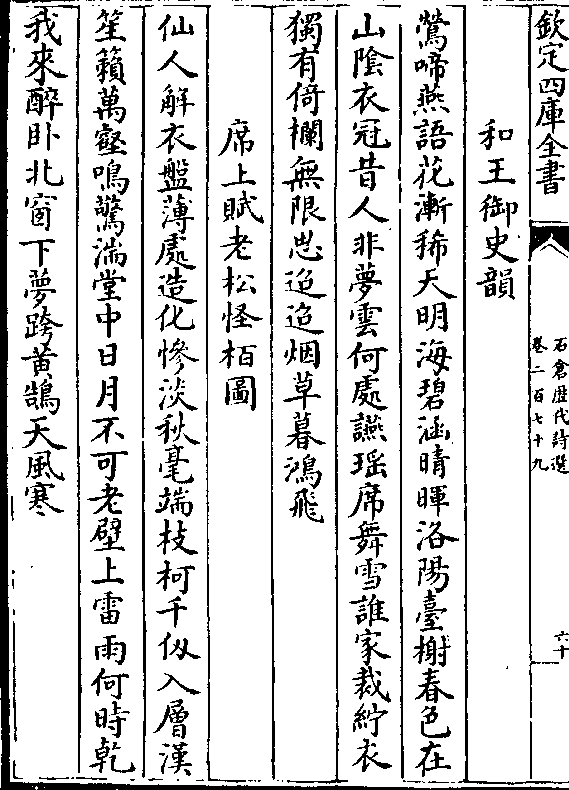 欽定四庫全書
石倉歷代詩選
卷二百七十九
六十
和王御史韻
鶯啼燕語花漸稀天明海碧涵晴暉洛陽臺榭春色在
山陰衣冠昔人非夢雲何處讌瑶席舞雪誰家裁紵衣
獨有倚欄無限思迢迢烟草暮鴻飛
席上賦老松怪栢圖
仙人解衣盤薄處造化慘淡秋毫端枝柯千仭入層漢
笙籟萬壑鳴驚湍堂中日月不可老壁上雷雨何時乾
我來醉卧北窗下夢跨黄鵠天風寒